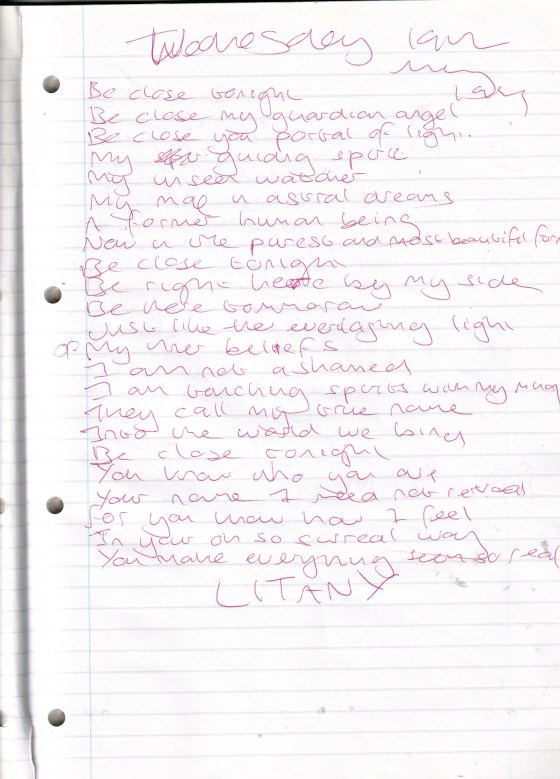 Wednesday 1am
my
lady
Be close tonight
Be close my guardian angel
Be close you portal of light..
My guiding spirit
My unseen watcher
My map in astral dreams
A former human being
Now in the purest and most beautiful form
Be close tonight
Be right here by my side
Be here tommorow
Just like the everlasting light
of My inner beliefs
I am not ashamed
I am touching spirits with my mind
They call my true name
Into the world we bind
Be close tonight
You know who you are
Your name I need not reveal
For you know how I feel
In your oh so surreal way
You make everything seem so real
LITANY